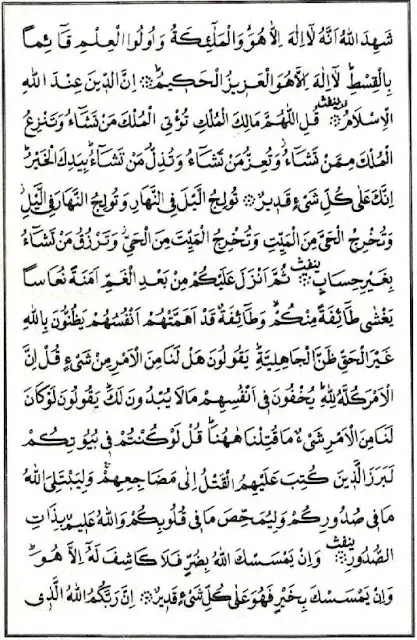 شَهِدَ اللّٰهُ اَنَّهٗ لَآ اِلٰهَ اِلَّا هُوَ وَالْمَلٰٓئِكَةُ وَاُولُوا الْعِلْمِ قَآئِمًا
بِالْقِسْطِ لَآ اِلٰهَ اِلَّا هُوَ الْعَزِيْزُ الْحَكِيْمُ ۞ اِنَّ الدِّيْنَ عِنْدَ اللّٰهِ
الْاِسْلَامُ ۞ قُلِ اللّٰهُمَّ مَالِكَ الْمُلْكِ تُؤْتِي الْمُلْكَ مَنْ تَشَآءُ وَتَنْزِعُ
الْمُلْكَ مِمَّنْ تَشَآءُ وَتُعِزُّ مَنْ تَشَآءُ وَتُذِلُّ مَنْ تَشَآءُ بِيَدِكَ الْخَيْرُ
اِنَّكَ عَلٰى كُلِّ شَيْءٍ قَدِيْرٌ ۞ تُوْلِجُ الَّيْلَ فِي النَّهَارِ وَتُوْلِجُ النَّهَارَ فِي الَّيْلِ
وَتُخْرِجُ الْحَيَّ مِنَ الْمَيِّتِ وَتُخْرِجُ الْمَيِّتَ مِنَ الْحَيِّ وَتَرْزُقُ مَنْ تَشَآءُ
بِغَيْرِ حِسَابٍ ۞ ثُمَّ اَنْزَلَ عَلَيْكُمْ مِنْ بَعْدِ الْغَمِّ اَمَنَةً نُعَاسًا
يَغْشٰى طَآئِفَةً مِنْكُمْ وَطَآئِفَةٌ قَدْ اَهَمَّتْهُمْ اَنْفُسُهُمْ يَظُنُّوْنَ بِاللّٰهِ
غَيْرَ الْحَقِّ ظَنَّ الْجَاهِلِيَّةِ يَقُوْلُوْنَ هَلْ لَنَا مِنَ الْاَمْرِ مِنْ شَيْءٍ قُلْ اِنَّ
الْاَمْرَ كُلَّهٗ لِلّٰهِ يُخْفُوْنَ فِيْ اَنْفُسِهِمْ مَا لَا يُبْدُوْنَ لَكَ يَقُوْلُوْنَ لَوْ كَانَ
لَنَا مِنَ الْاَمْرِ شَيْءٌ مَا قُتِلْنَا هٰهُنَا قُلْ لَوْ كُنْتُمْ فِيْ بُيُوْتِكُمْ
لَبَرَزَ الَّذِيْنَ كُتِبَ عَلَيْهِمُ الْقَتْلُ اِلٰى مَضَاجِعِهِمْ وَلِيَبْتَلِيَ اللّٰهُ
مَا فِيْ صُدُوْرِكُمْ وَلِيُمَحِّصَ مَا فِيْ قُلُوْبِكُمْ وَاللّٰهُ عَلِيْمٌ بِذَاتِ
الصُّدُوْرِ ۞ وَاِنْ يَمْسَسْكَ اللّٰهُ بِضُرٍّ فَلَا كَاشِفَ لَهٗٓ اِلَّا هُوَ
وَاِنْ يَمْسَسْكَ بِخَيْرٍ فَهُوَ عَلٰى كُلِّ شَيْءٍ قَدِيْرٌ ۞ اِنَّ رَبَّكُمُ اللّٰهُ الَّذِيْ